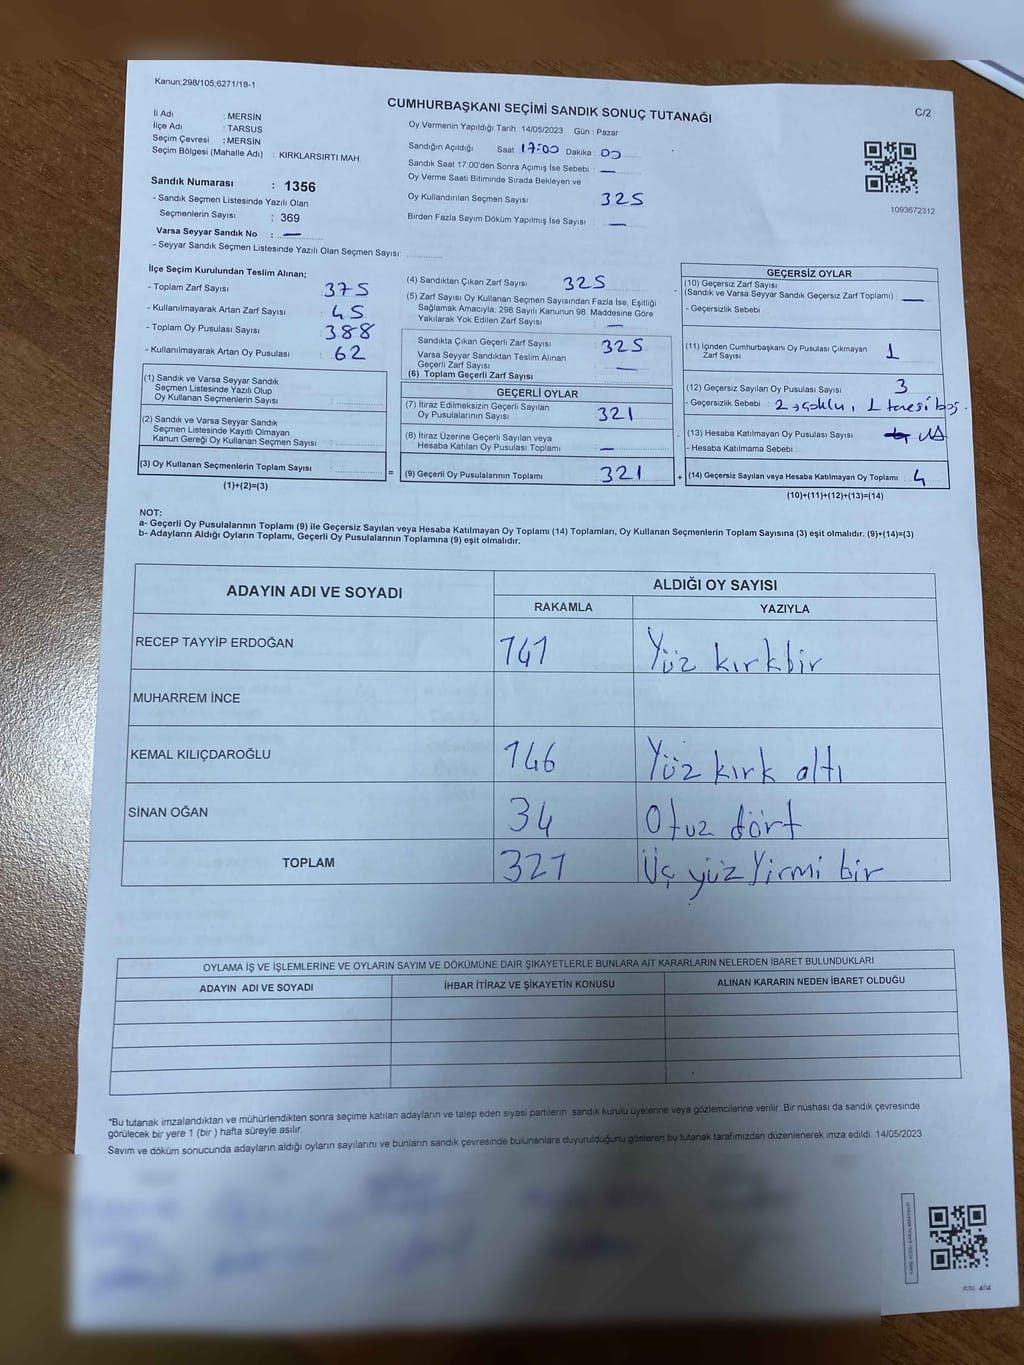 Kanun;298/105;6271/18-1
CUMHURBAŞKANI SEÇİMİ SANDIK SONUÇ TUTANAĞI
C/2
İli Adı : MERSİN
İlçe Adı : TARSUS
Seçim Çevresi : MERSİN
Seçim Bölgesi (Mahalle Adı) : KIRKLARSIRTI MAH.
Sandık Numarası : 1356
- Sandık Seçmen Listesinde Yazılı Olan
Seçmenlerin Sayısı : 369
Varsa Seyyar Sandık No : —
- Seyyar Sandık Seçmen Listesinde Yazılı Olan Seçmen Sayısı:
Oy Vermenin Yapıldığı Tarih :14/05/2023 Gün : Pazar
Sandığın Açıldığı Saat 17:00 Dakika 00
Sandık Saat 17:00'den Sonra Açımış İse Sebebi : —
Oy Verme Saati Bitiminde Sırada Bekleyen ve
Oy Kullandırılan Seçmen Sayısı 325
Birden Fazla Sayım Döküm Yapılmış İse Sayısı : —
1093672312
İlçe Seçim Kurulundan Teslim Alınan;
- Toplam Zarf Sayısı : 375
- Kullanılmayarak Artan Zarf Sayısı : 45
- Toplam Oy Pusulası Sayısı : 388
- Kullanılmayarak Artan Oy Pusulası : 62
(1) Sandık ve Varsa Seyyar Sandık
Seçmen Listesinde Yazılı Olup
Oy Kullanan Seçmenlerin Sayısı :
(2) Sandık ve Varsa Seyyar Sandık
Seçmen Listesinde Kayıtlı Olmayan
Kanun Gereği Oy Kullanan Seçmen Sayısı :
(3) Oy Kullanan Seçmenlerin Toplam Sayısı :
(1)+(2)=(3)
=
(4) Sandıktan Çıkan Zarf Sayısı : 325
(5) Zarf Sayısı Oy Kullanan Seçmen Sayısından Fazla İse, Eşitliği
Sağlamak Amacıyla; 298 Sayılı Kanunun 98. Maddesine Göre
Yakılarak Yok Edilen Zarf Sayısı : —
Sandıkta Çıkan Geçerli Zarf Sayısı : 325
Varsa Seyyar Sandıktan Teslim Alınan
Geçerli Zarf Sayısı : —
(6) Toplam Geçerli Zarf Sayısı
GEÇERLİ OYLAR
(7) İtiraz Edilmeksizin Geçerli Sayılan
Oy Pusulalarının Sayısı : 321
(8) İtiraz Üzerine Geçerli Sayılan veya
Hesaba Katılan Oy Pusulası Toplamı : —
(9) Geçerli Oy Pusulalarının Toplamı : 321
+
GEÇERSİZ OYLAR
(10) Geçersiz Zarf Sayısı
(Sandık ve Varsa Seyyar Sandık Geçersiz Zarf Toplamı) : —
- Geçersizlik Sebebi
(11) İçinden Cumhurbaşkanı Oy Pusulası Çıkmayan
Zarf Sayısı 1
(12) Geçersiz Sayılan Oy Pusulası Sayısı : 3
- Geçersizlik Sebebi : 2 → çoklu, 1 tanesi boş.
(13) Hesaba Katılmayan Oy Pusulası Sayısı :
- Hesaba Katılmama Sebebi :
(14) Geçersiz Sayılan veya Hesaba Katılmayan Oy Toplamı : 4
(10)+(11)+(12)+(13)=(14)
NOT:
a- Geçerli Oy Pusulalarının Toplamı (9) ile Geçersiz Sayılan veya Hesaba Katılmayan Oy Toplamı (14) Toplamları, Oy Kullanan Seçmenlerin Toplam Sayısına (3) eşit olmalıdır. (9)+(14)=(3)
b- Adayların Aldığı Oyların Toplamı, Geçerli Oy Pusulalarının Toplamına (9) eşit olmalıdır.
ADAYIN ADI VE SOYADI ALDIĞI OY SAYISI
RAKAMLA YAZIYLA
RECEP TAYYİP ERDOĞAN 141 Yüz kırkbir
MUHARREM İNCE
KEMAL KILIÇDAROĞLU 146 Yüz kırk altı
SİNAN OĞAN 34 Otuz dört
TOPLAM 321 Üç yüz Yirmi bir
OYLAMA İŞ VE İŞLEMLERİNE VE OYLARIN SAYIM VE DÖKÜMÜNE DAİR ŞİKAYETLERLE BUNLARA AİT KARARLARIN NELERDEN İBARET BULUNDUKLARI
ADAYIN ADI VE SOYADI İHBAR İTİRAZ VE ŞİKAYETİN KONUSU ALINAN KARARIN NEDEN İBARET OLDUĞU
*Bu tutanak imzalandıktan ve mühürlendikten sonra seçime katılan adayların ve talep eden siyasi partilerin sandık kurulu üyelerine veya gözlemcilerine verilir. Bir nüshası da sandık çevresinde
görülecek bir yere 1 (bir ) hafta süreyle asılır.
Sayım ve döküm sonucunda adayların aldığı oyların sayılarını ve bunların sandık çevresinde bulunanlara duyurulduğunu gösteren bu tutanak tarafımızdan düzenlenerek imza edildi. 14/05/2023